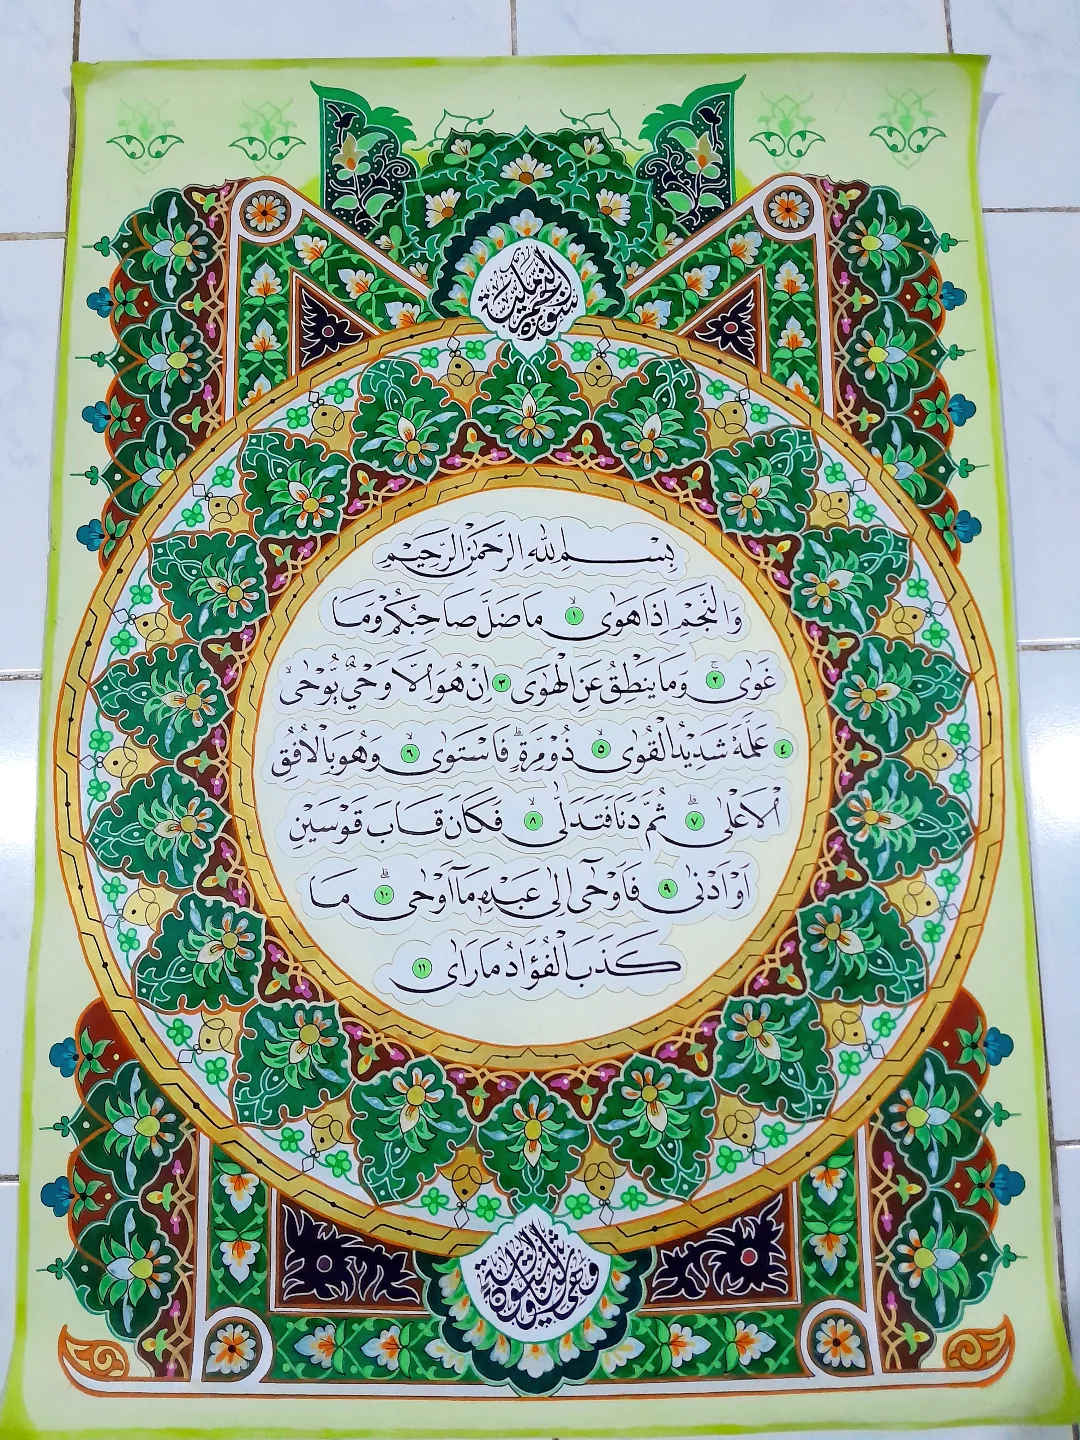 سورة النجم مكية
بِسْمِ اللهِ الرَّحْمٰنِ الرَّحِيْمِ
وَالنَّجْمِ اِذَا هَوٰى ١ مَا ضَلَّ صَاحِبُكُمْ وَمَا
غَوٰى ٢ وَمَا يَنْطِقُ عَنِ الْهَوٰى ٣ اِنْ هُوَ اِلَّا وَحْيٌ يُّوْحٰى
٤ عَلَّمَهٗ شَدِيْدُ الْقُوٰى ٥ ذُوْ مِرَّةٍۗ فَاسْتَوٰى ٦ وَهُوَ بِالْاُفُقِ
الْاَعْلٰى ٧ ثُمَّ دَنَا فَتَدَلّٰى ٨ فَكَانَ قَابَ قَوْسَيْنِ
اَوْ اَدْنٰى ٩ فَاَوْحٰٓى اِلٰى عَبْدِهٖ مَآ اَوْحٰى ١٠ مَا
كَذَبَ الْفُؤَادُ مَا رَاٰى ١١